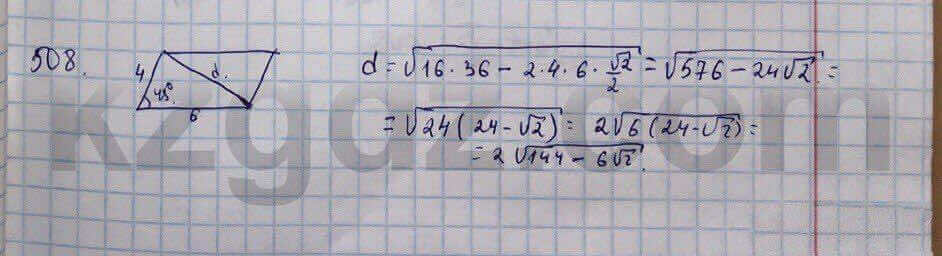 508.
4
d.
45°.
6
d = √16·36 - 2·4·6·√2/2 = √576 - 24√2 =
= √24(24-√2) = 2√6(24-√2) =
= 2√144 - 6√2.
kzgdz.com